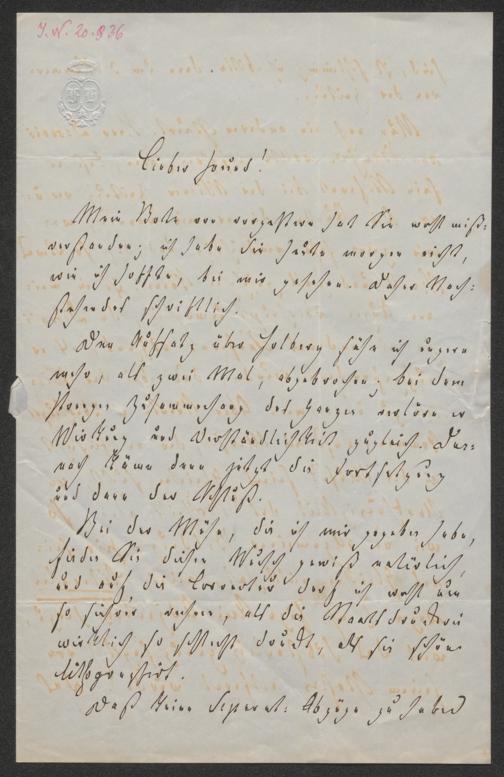 I. N. 20.936
Lieber Freund!
Mein Bote von vorgestern hat Sie wohl miß-
verstanden; ich habe Sie heute morgen nicht,
wie ich hoffte, bei mir gesehen. Daher Nach-
stehendes schriftlich.
Den Aufsatz über Holberg sähe ich ungern
mehr, als zwei Mal, abgebrochen; bei dem
strengen Zusammenhang des Ganzen verlöre er
Wirkung und Verständlichkeit zugleich. Dar-
nach käme denn jetzt die Fortsetzung
und dann der Schluß.
Bei der Mühe, die ich mir gegeben habe,
finden Sie diesen Wunsch gewiß natürlich,
und auf die Correctur darf ich wohl um
so sicherer rechnen, als die Staatsdruckerei
wirklich so schlecht druckt, als sie schön
lithographirt.
Daß keine Separat-Abzüge zu haben